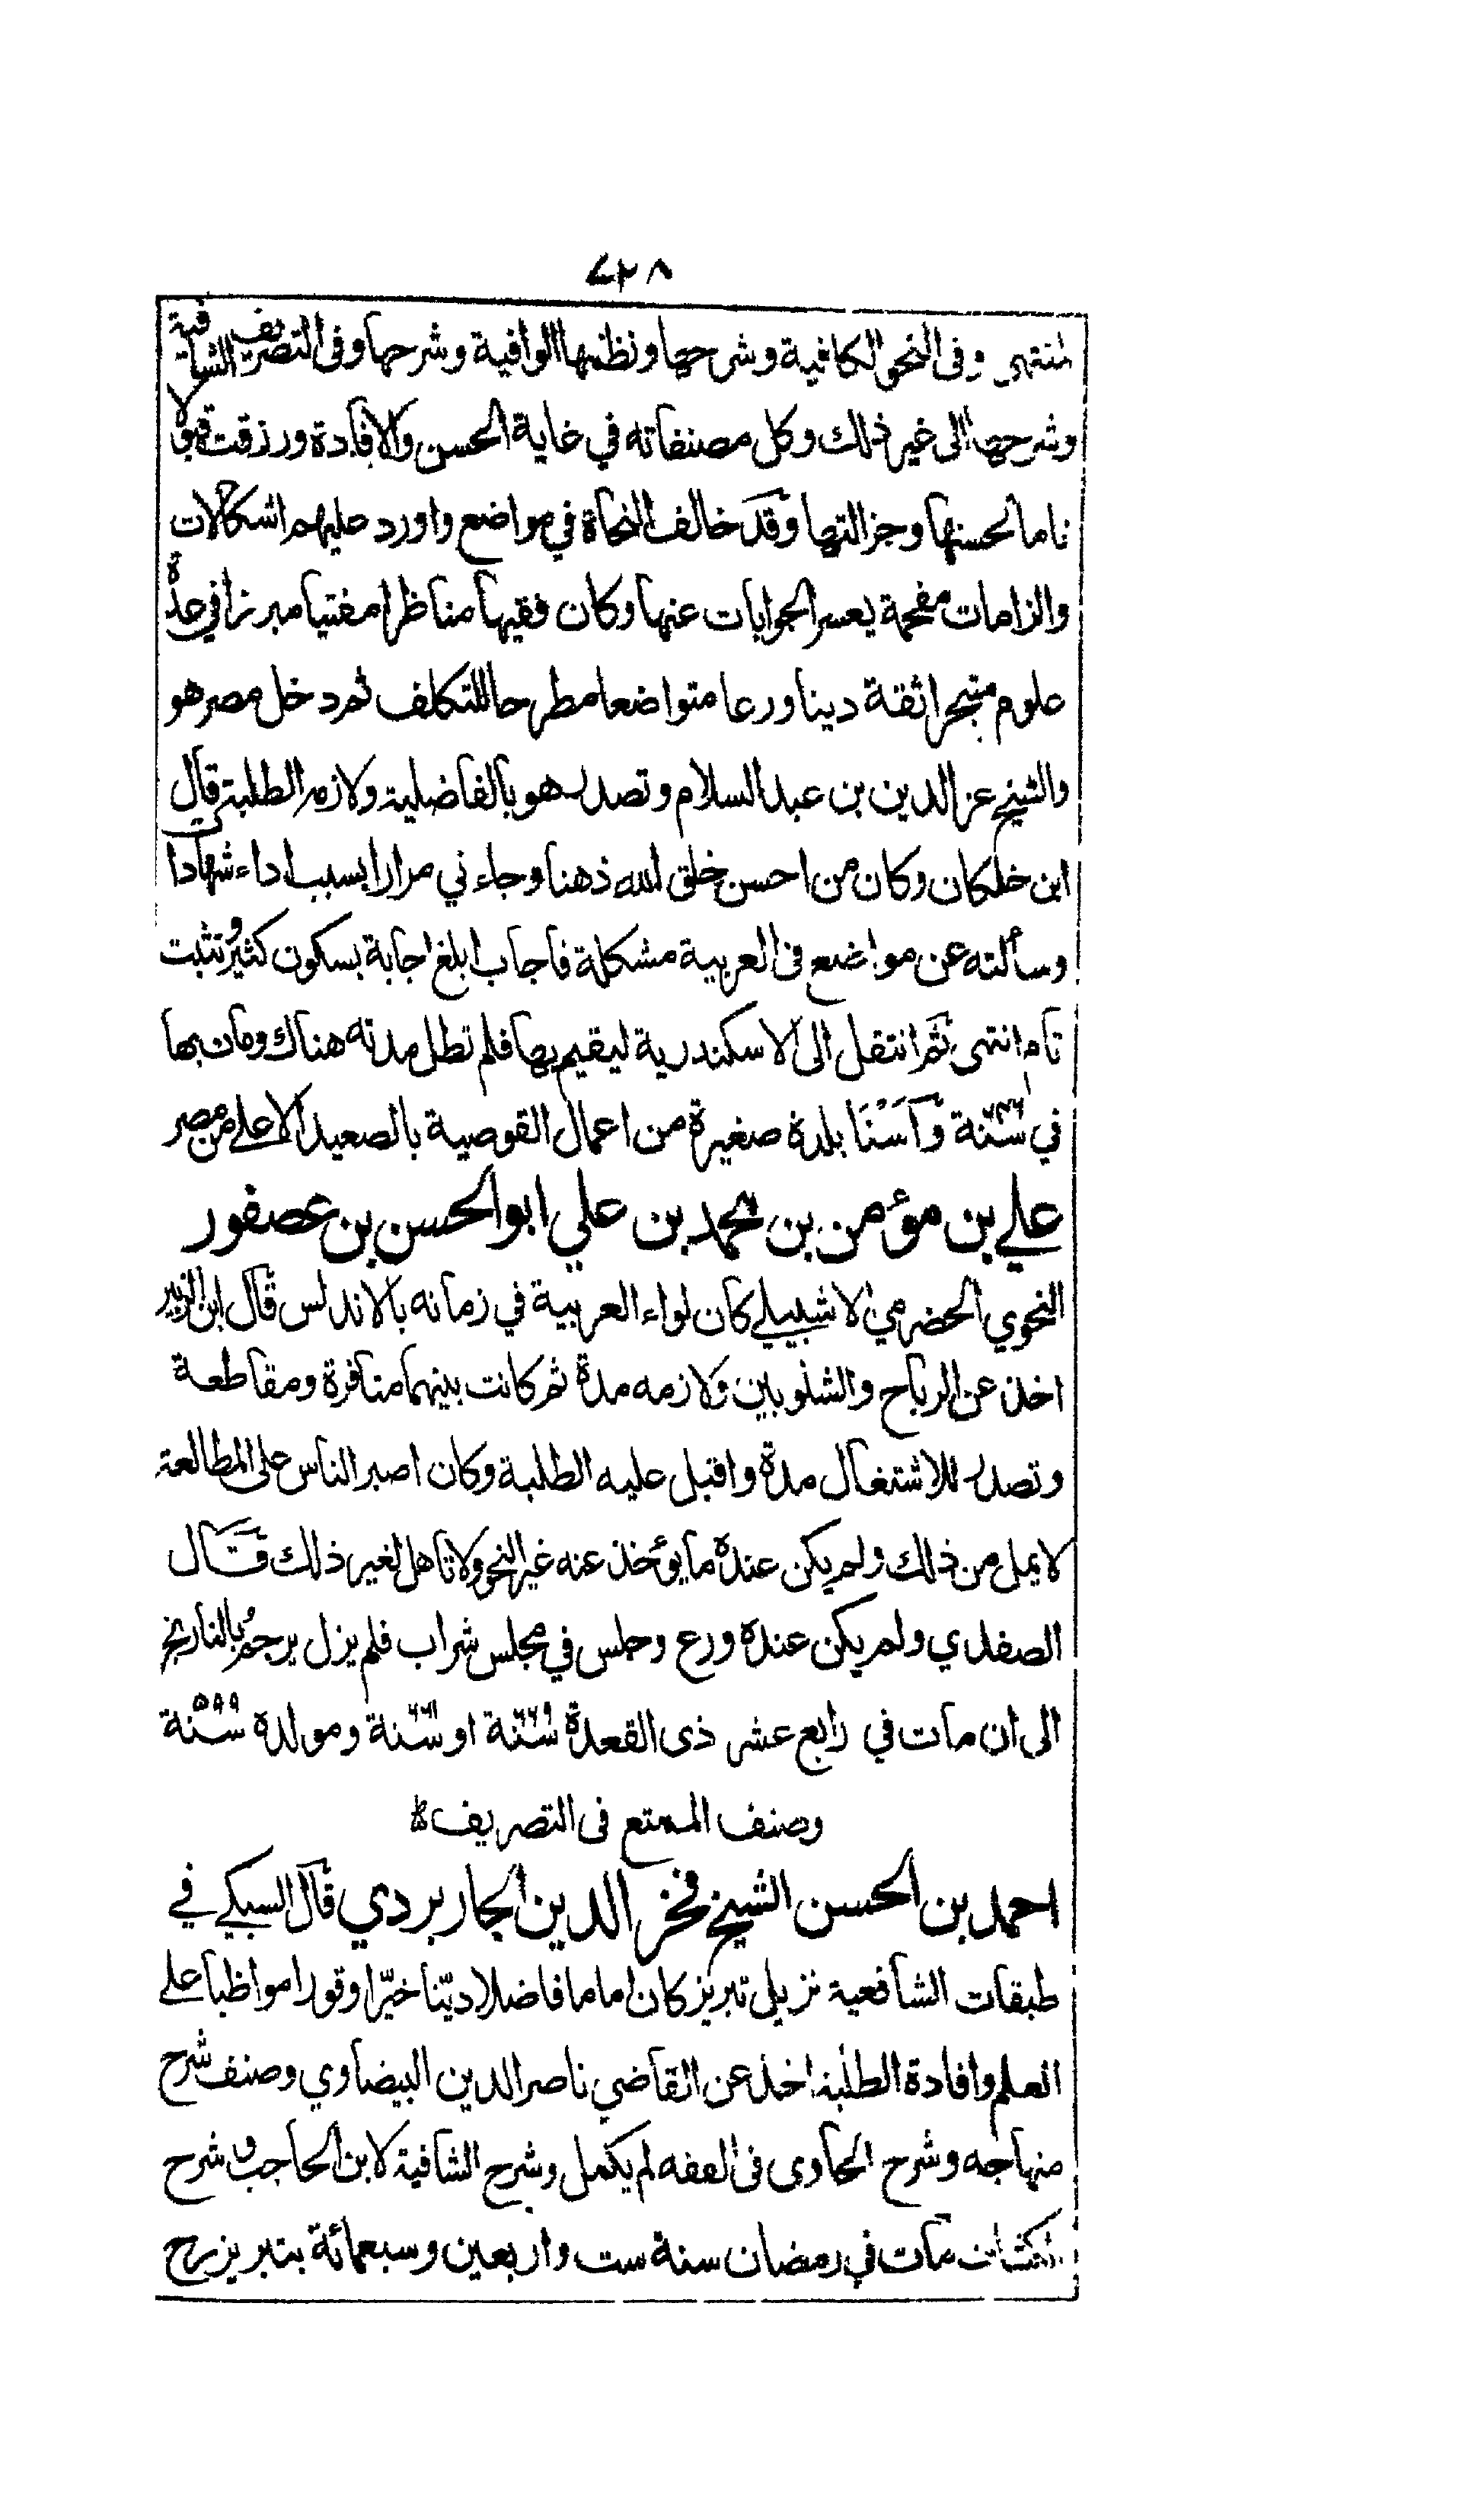 ٧٢٨
المنتهى وفى النحو الكافية وشرحها ونظمها الوافية وشرحها وفى التصريف الشافية
وشرحها الى غير ذلك وكل مصنفاته في غاية الحسن والافادة ورزقت قبولا
تاما لحسنها وجزالتها وقد خالف النحاة في مواضع واورد عليهم اشكالات
والزامات مفحمة يعسر الجوابات عنها وكان فقيها مناظرا مفتيا مبرزا في عدة
علوم متبحرا ثقة دينا ورعا متواضعا مطرحا للتكلف ثم دخل مصر هو
والشيخ عز الدين بن عبد السلام وتصدر هو بالفاضلية ولازمه الطلبة قال
ابن خلكان وكان من احسن خلق الله ذهنا وجاءني مرارا بسبب اداء شهادات
وسألته عن مواضع فى العربية مشكلة فاجاب ابلغ اجابة بسكون كثير وتثبت
تام انتهى ثم انتقل الى الاسكندرية ليقيم بها فلم تطل مدته هناك ومات بها
في سنة ٦٤٦ وأَسْنَا بلدة صغيرة من اعمال القوصية بالصعيد الاعلى من مصر
علي بن مؤمن بن محمد بن علي ابو الحسن بن عصفور
النحوي الحضرمي الاشبيلي كان لواء العربية في زمانه بالاندلس قال ابن الزبير
اخذ عن الرباح والشلوبين ولازمه مدة ثم كانت بينهما منافرة ومقاطعة
وتصدر للاشتغال مدة واقبل عليه الطلبة وكان اصبر الناس على المطالعة
لا يمل من ذلك ولم يكن عنده ما يؤخذ عنه غير النحو ولا تاهل لغير ذلك قال
الصفدي ولم يكن عنده ورع وجلس في مجلس شراب فلم يزل يرجم بالنارنج
الى ان مات في رابع عشر ذى القعدة سنة ٦٦٩ او سنة ومولده سنة ٥٩٩
وصنف الممتع فى التصريف
احمد بن الحسن الشيخ فخر الدين الجاربردي قال السبكي في
طبقات الشافعية نزيل تبريز كان اماما فاضلا ديّنا خيّرا وقورا مواظبا على
العلم وافادة الطلبة اخذ عن القاضي ناصر الدين البيضاوي وصنف شرح
منهاجه وشرح الحاوى فى الفقه لم يكمل وشرح الشافية لابن الحاجب وشرح
الكشاف مات في رمضان سنة ست واربعين وسبعمائة بتبريز رح